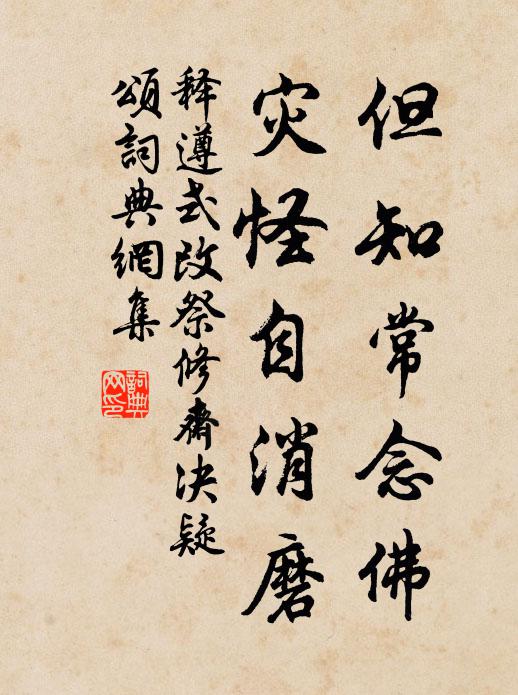 但知常念佛
灾怪自消磨
释遵式改祭修齋决疑
頌詞典網集
詞典
网印